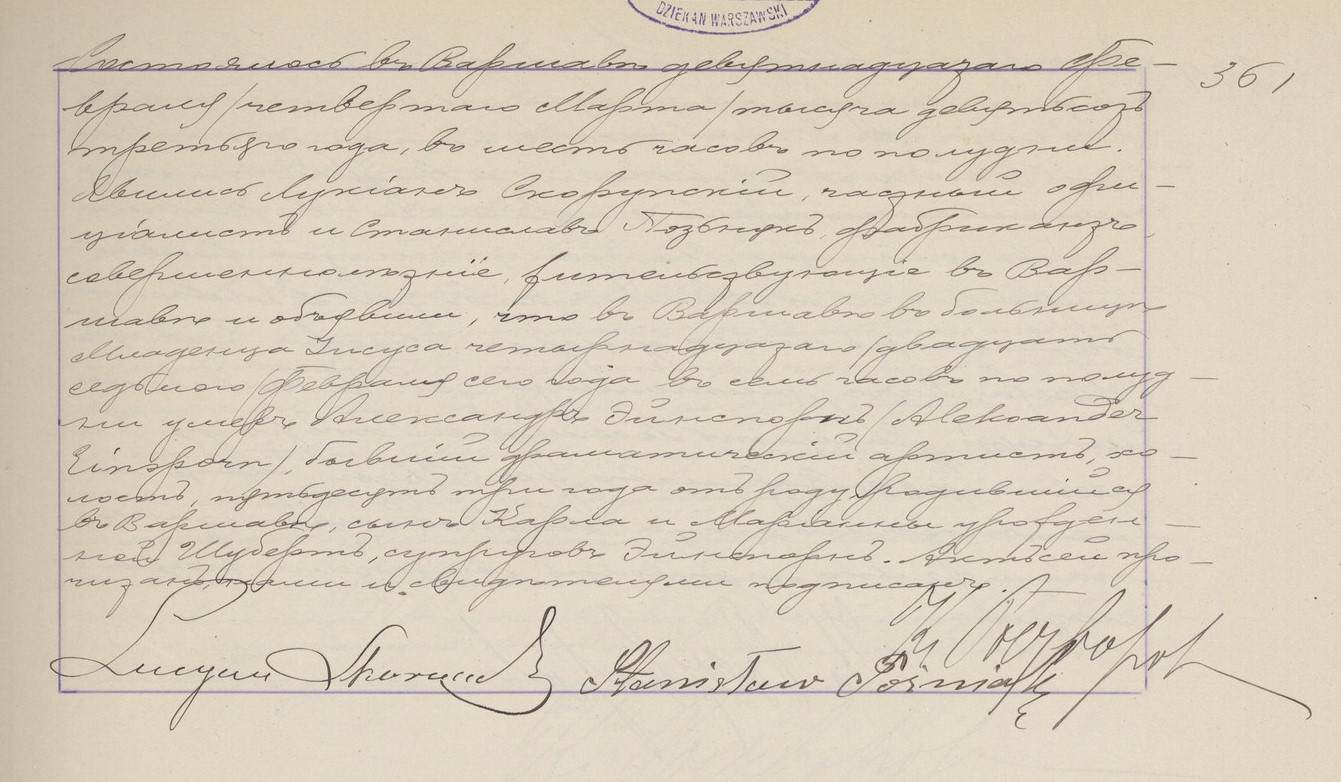 DZIEKAN WARSZAWSKI
Состоялось въ Варшавѣ девятнадцатаго Фе-
361
враля /четвертаго Марта/ тысяча девятьсотъ
третьяго года, въ шесть часовъ по полудни.
Явились Лукіанъ Скорупскій, частный офи-
ціалистъ и Станиславъ Позьнякъ, фабрикантъ
совершеннолѣтніе, жительствующіе въ Вар-
шавѣ и объявили, что въ Варшавѣ въ больницѣ
Младенца Іисуса четырнадцатаго /двадцать
седьмого/ Февраля сего года въ семь часовъ по полуд-
ни умеръ Александръ Эйнспорнъ /Aleksander
Einsporn/, бывшій драматическій артистъ, хо-
лостъ, пятьдесятъ три года отъ роду, родившійся
въ Варшавѣ, сынъ Карла и Маріанны урожден-
ной Шубертъ, супруговъ Эйнспорнъ. Актъ сей про-
читанъ, нами и свидѣтелями подписанъ.
Lucyan Skorupski Stanisław Poźniak